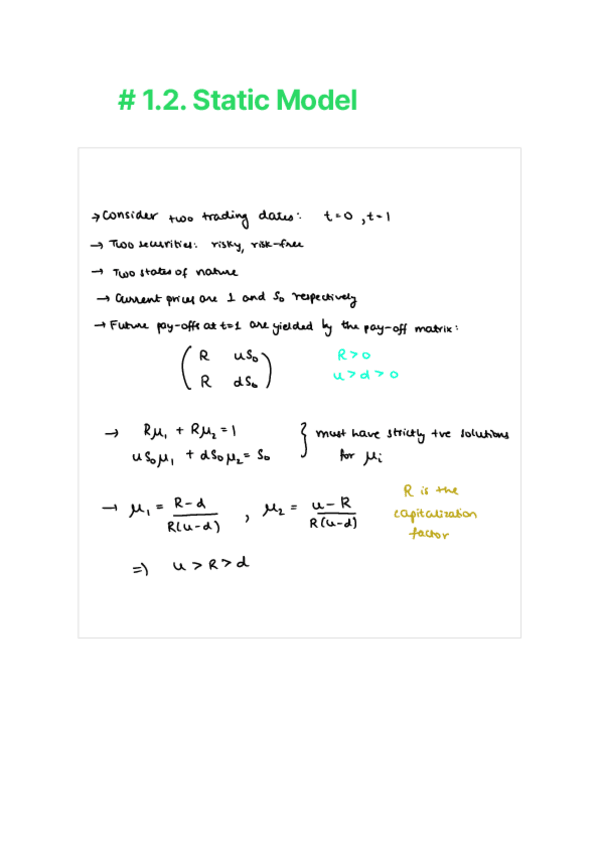 # 1.2. Static Model
→ Consider two trading dates: t=0, t=1
→ Two securities: risky, risk-free
→ Two states of nature
→ Current prices are 1 and S₀ respectively
→ Future pay-offs at t=1 are yielded by the pay-off matrix:
( R uS₀ ) R>0
( R dS₀ ) u>d>0
→ Rμ₁ + Rμ₂ = 1 } must have strictly +ve solutions
uS₀μ₁ + dS₀μ₂ = S₀ for μᵢ
→ μ₁ = R-d / R(u-d) , μ₂ = u-R / R(u-d)
R is the
capitalization
factor
=) u > R > d